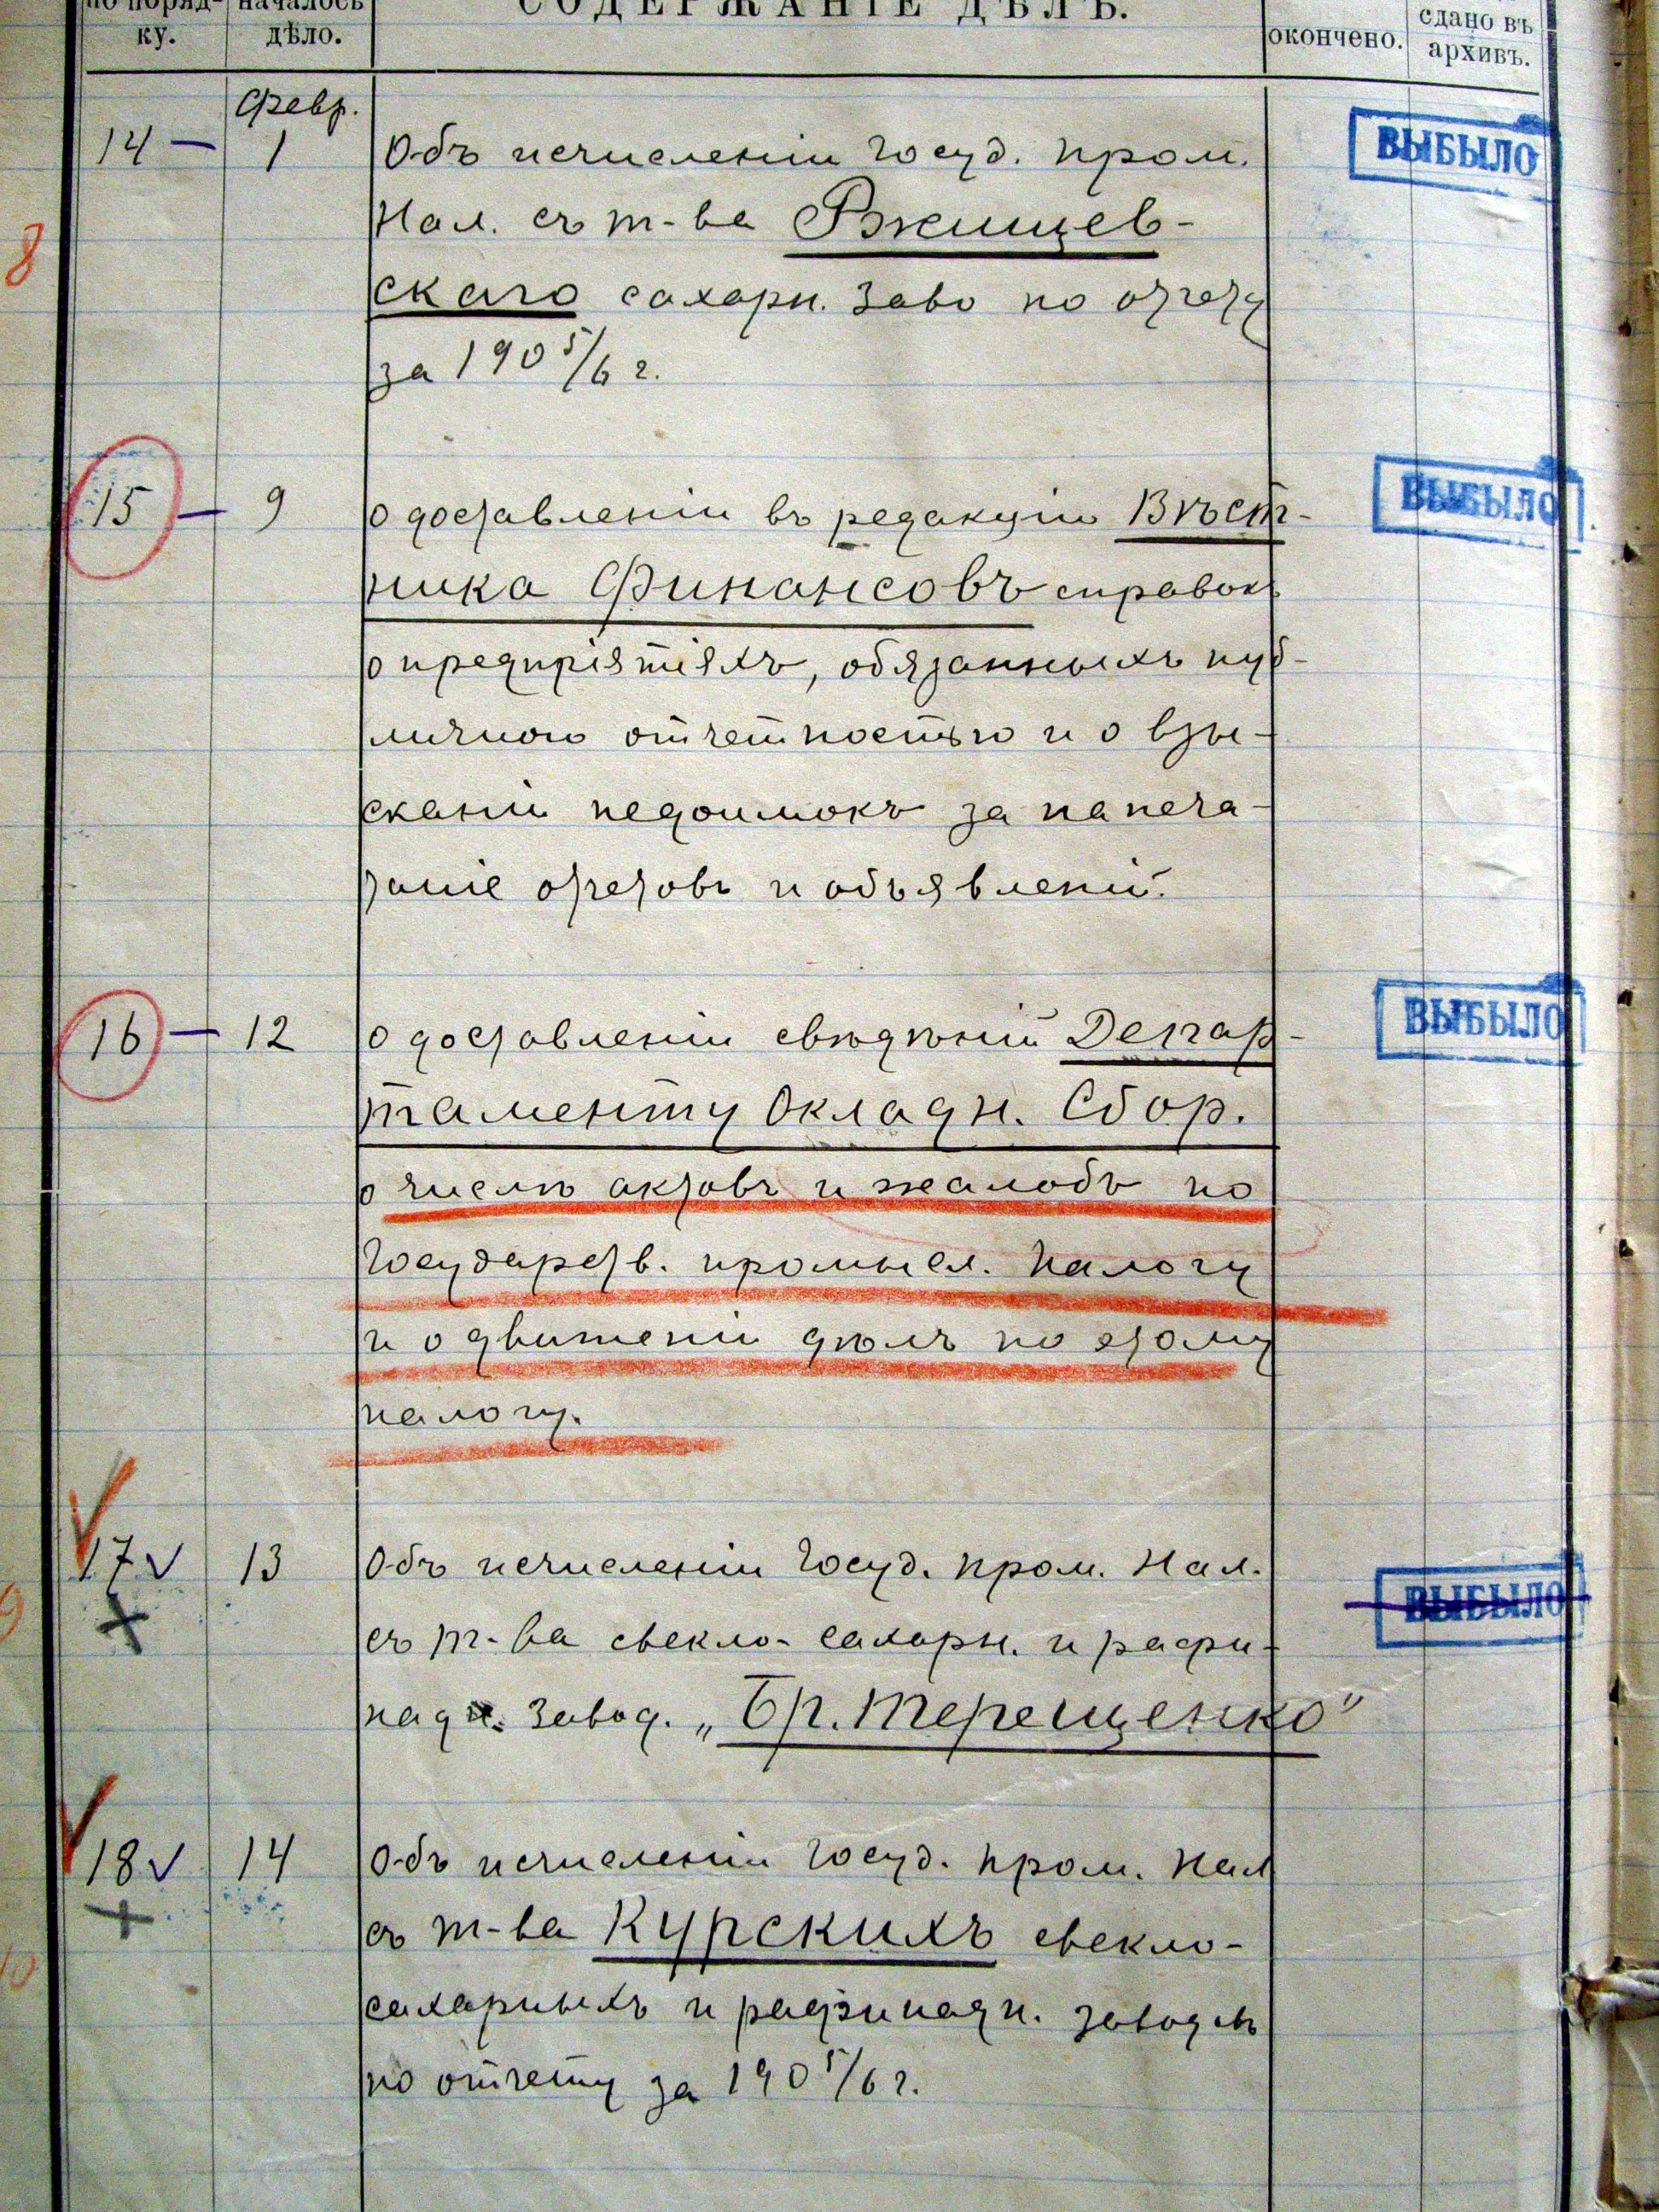 по поряд-
ку.
началось
дѣло.
СОДЕРЖАНІЕ ДѢЛЪ.
окончено.
сдано въ
архивъ.
Февр.
14 — 1 Объ исчисленіи Госуд. пром. ВЫБЫЛО
Нал. съ т-ва Ржищев-
8
скаго сахарн. Заво по отчету
за 190 5/6 г.
15 — 9 о доставленіи въ редакцію Вѣст- ВЫБЫЛО
ника Финансовъ справокъ
о предпріятіяхъ, обязанныхъ пуб-
личною отчетностью и о взы-
сканіи недоимокъ за напеча-
таніе отчетовъ и объявленій.
16 — 12 о доставленіи свѣдѣній Депар- ВЫБЫЛО
таменту Окладн. Сбор.
о числѣ актовъ и жалобъ по
Государств. промысл. Налогу
и о движеніи дѣлъ по этому
налогу.
17 v 13 Объ исчисленіи Госуд. пром. Нал. ВЫБЫЛО
9
съ т-ва свекло-сахарн. и рафи-
надн. завод. „Бр. Терещенко"
18 v 14 Объ исчисленіи Госуд. пром. Нал
съ т-ва Курскихъ свекло-
10
сахарныхъ и рафинадн. заводовъ
по отчету за 190 5/6 г.